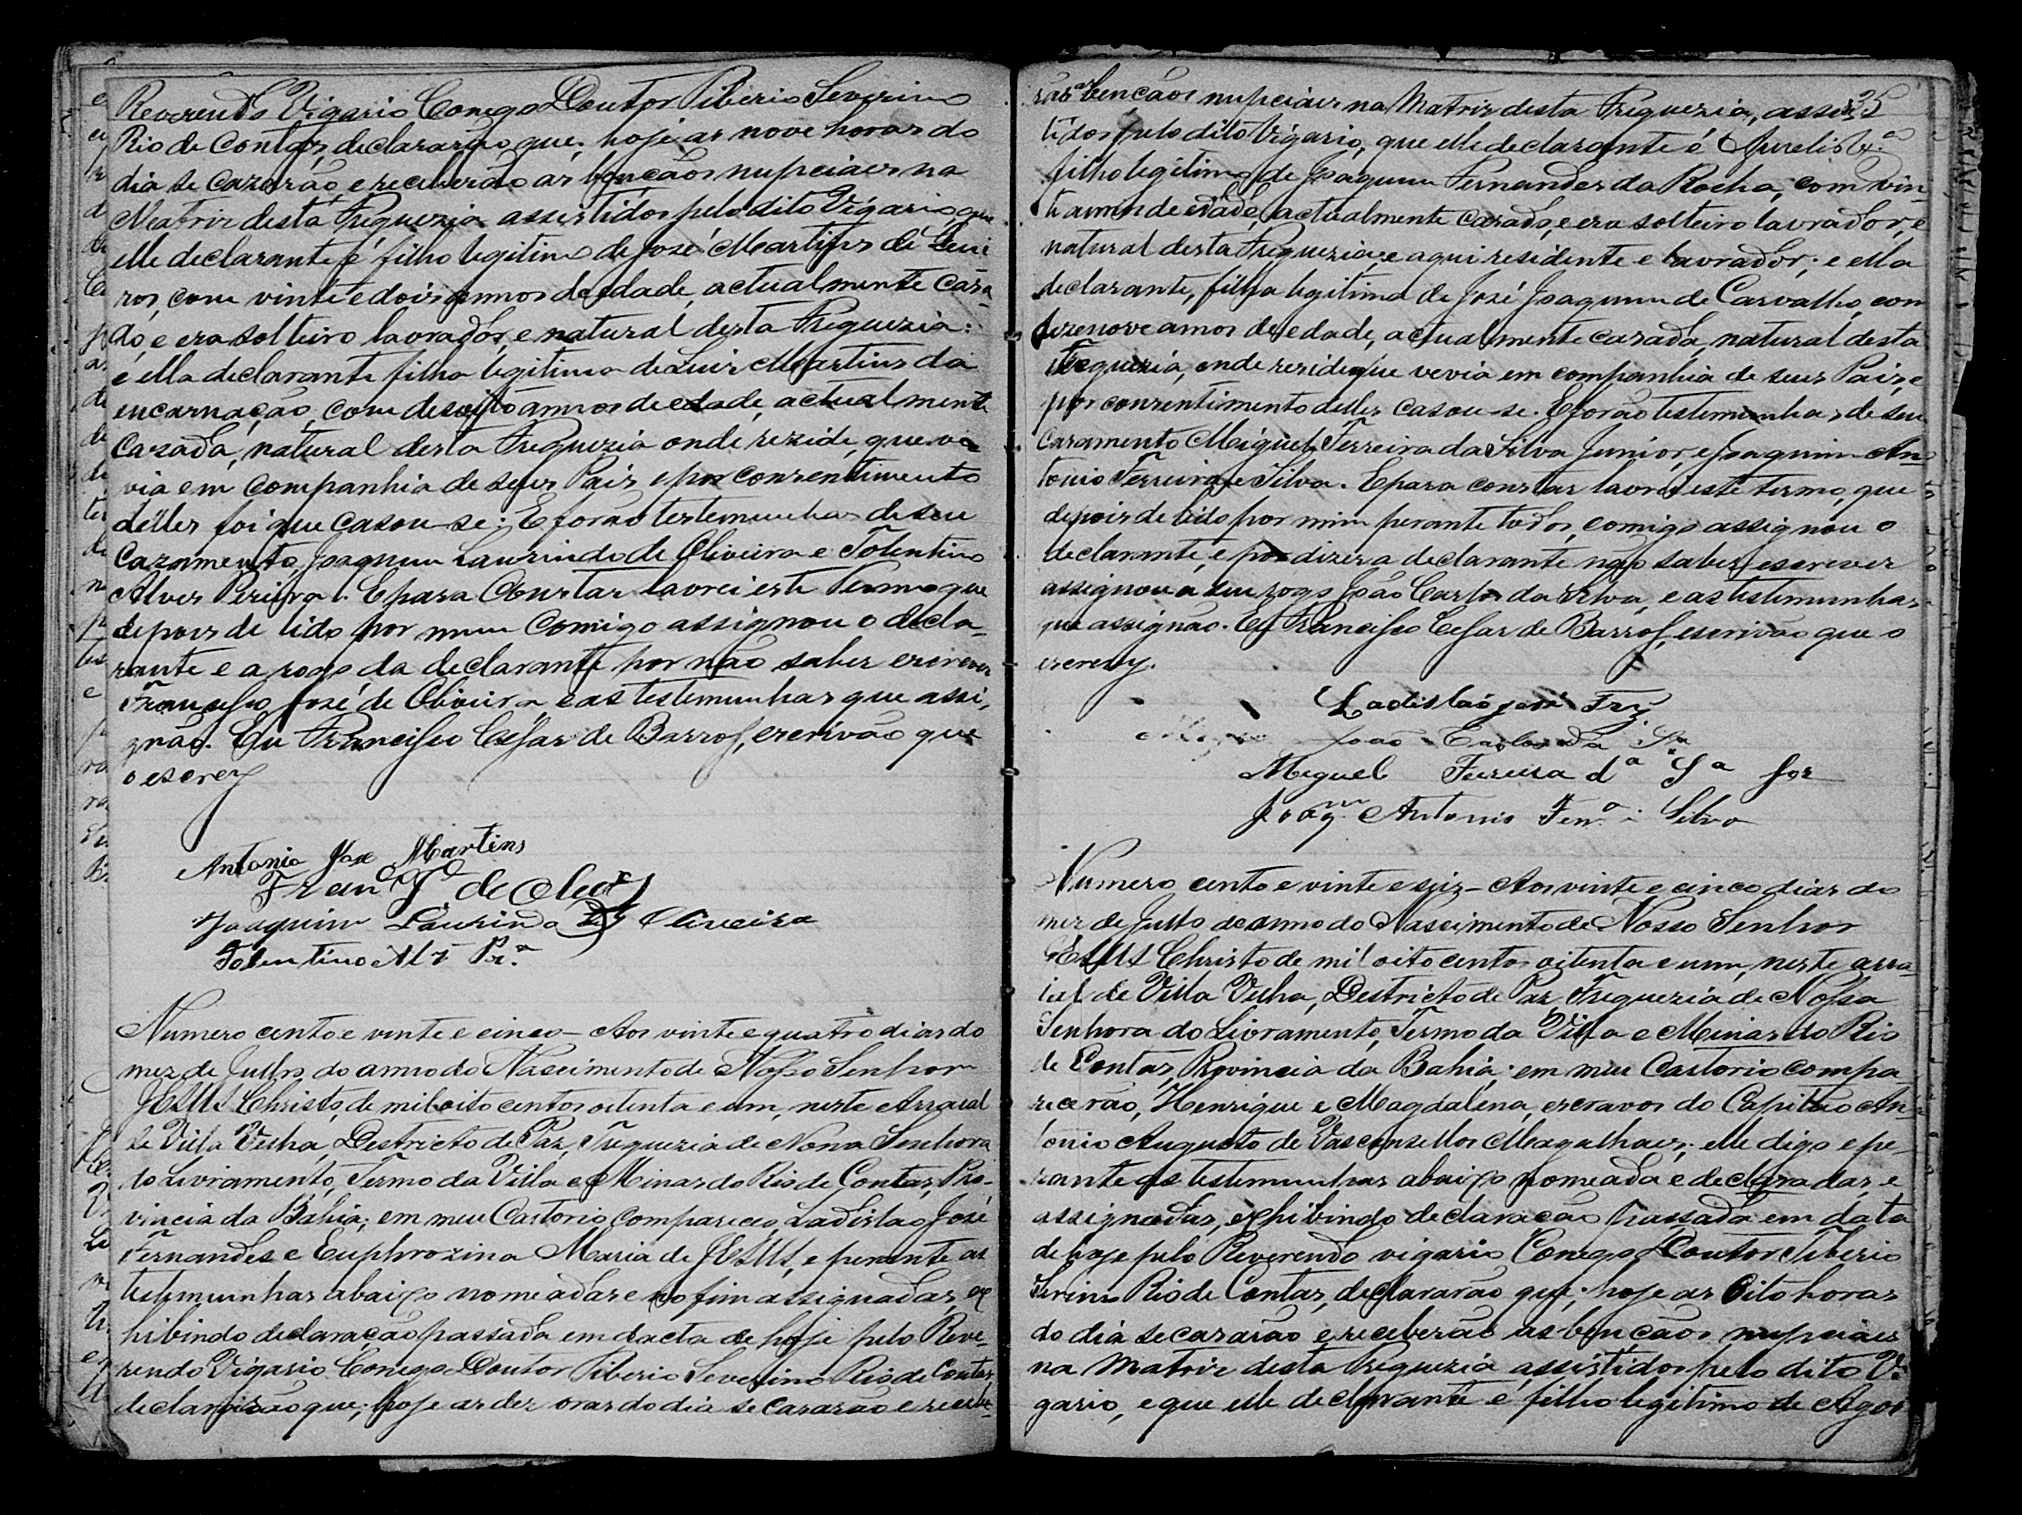 Reverendo Vigario Conego Doutor Tiberio Severino
Rio de Contas, declararão que; hoje as nove horas do
dia se cazarão, e receberão as bençãos nupciaes na
Matriz desta Freguezia assistidos pelo dito Vigario que
elle declarante é filho legitimo de José Martins de
ros, com vinte e dois annos de edade, actualmente casa-
do, e era solteiro lavrador, e natural desta Freguezia:
e ella declarante filha legitima de Luis Martins da
encarnação, com desoito annos de edade, actualmente
casada, natural desta Freguezia onde rezide, que vi-
via em companhia de seus Pais, e por consentimento
delles foi que casou-se: E forão testemunhas de seu
cazamento Joaquim Laurindo de Oliveira e Tolentino
Alves Pereira. E para constar lavrei este Termo que
depois de lido por mim comigo assignou o decla-
rante e a rogo da declarante por não saber escrever
Francisco José de Oliveira e as testemunhas que assi-
gnão. Eu Francisco Cesar de Barros, escrivão que
o escrevy
Antonio Jose Martins
Fran.co J.e de Olivr.a
Joaquim Laurindo de Oliveira
Tolentino Alz Pr.a
Numero cento e vinte e cinco - Aos vinte e quatro dias do
mez de Julho do anno do Nascimento de Nosso Senhor
JESUS Christo, de mil oito centos oitenta e um, neste Arraial
de Villa Velha, Destricto de Paz, Freguezia de Nossa Senhora
do Livramento, Termo da Villa e Minas do Rio de Contas, Pro-
vincia da Bahia; em meu Cartorio compareceo Ladislao José
Fernandes e Euphrozina Maria de JESUS, e perante as
testemunhas abaixo nomeadas e no fim assignadas, ex
hibindo declaração passada em dacta de hoje pelo Reve-
rendo Vigario Conego Doutor Tiberio Severino Rio de Contas
declararão que; hoje as dez oras do dia se casarão e recebe-
rão as bençãos nupciaes na Matriz desta Freguezia, assis 35
tidos pelo dito Vigario, que elle declarante é
filho legitimo de Joaquim Fernandes da Rocha, com vin-
te annos de edade, actualmente casado, e era solteiro lavrador, e
natural desta Freguezia, e aqui residente e lavrador; e ella
declarante, filha legitima de José Joaquim de Carvalho, com
dezenove annos de edade, actualmente casada, natural desta
Freguezia, onde reside que vevia em companhia de seus Pais, e
por consentimento delles casou-se. E forão testemunhas de seu
casamento Miguel Ferreira da Silva Junior, e Joaquim An-
tonio Ferreira e Silva. E para constar lavrei este termo, que
depois de lido por mim perante todos, comigo assignou o
declarante, e por dizer a declarante não saber escrever
assignou a seu rogo João Carlos da Silva, e as testemunhas
que assignão. Eu Francisco Cesar de Barros, escrivão que o
escrevy.
Ladislao José Frz
João Carlos da S.a
Miguel Ferreira d.a S.a Jor
Joaq.m Antonio Ferr.a e Silva
Numero cento e vinte e seis - Aos vinte e cinco dias do
mez de Julho do anno do Nascimento de Nosso Senhor
JESUS Christo de mil oito centos oitenta e um, neste arra-
ial de Villa Velha, Destricto de Paz, Freguezia de Nossa
Senhora do Livramento, Termo da Villa e Minas do Rio
de Contas, Provincia da Bahia; em meu Cartorio compa-
recerão, Henrique e Magdalena, escravos do Capitão An-
tonio Augusto de Vasconsellos Magalhaes; elle digo e pe-
rante as testemunhas abaixo nomeada e declaradas, e
assignadas, exhibindo declaração passada em data
de hoje pelo Reverendo vigario Conego Doutor Tiberio
Severino Rio de Contas, declararão que; hoje as Oito horas
do dia se casarão, e receberão as bençãos nupciaes
na Matriz desta Freguezia, assistidos pelo dito Vi-
gario, e que elle declarante é filho legitimo de Agos